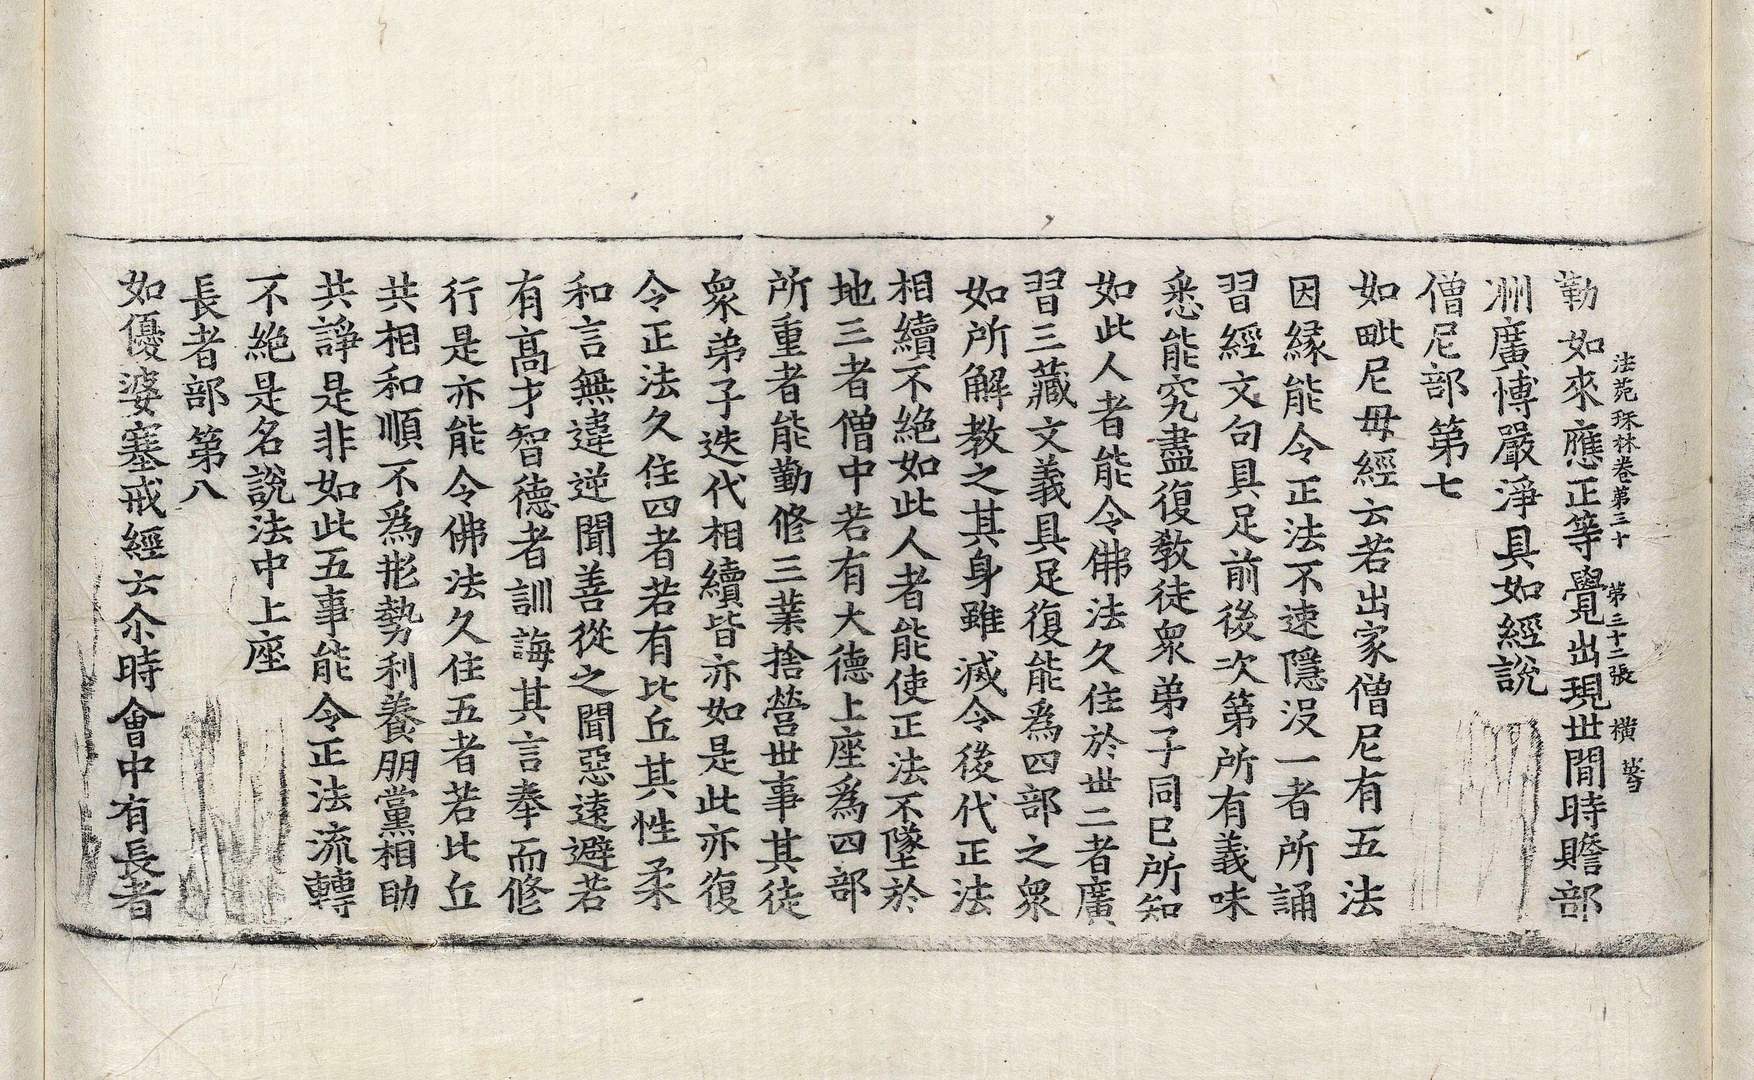 法苑珠林卷第三十 第三十二張 橫 營
勤如來應正等覺出現世間時贍部
洲廣博嚴淨具如經說
僧尼部第七
如毗尼毋經云若出家僧尼有五法
因緣能令正法不速隱没一者所誦
習經文句具足前後次第所有義味
悉能究盡復教徒衆弟子同已所知
如此人者能令佛法久住於世二者廣
習三藏文義具足復能爲四部之衆
如所解教之其身雖滅令後代正法
相續不絶如此人者能使正法不墜於
地三者僧中若有大德上座爲四部
所重者能勤修三業捨營世事其徒
衆弟子迭代相續皆亦如是此亦復
令正法久住四者若有比丘其性柔
和言無違逆聞善從之聞惡遠避若
有高才智德者訓誨其言奉而修
行是亦能令佛法久住五者若比丘
共相和順不爲形勢利養朋黨相助
共諍是非如此五事能令正法流轉
不絶是名說法中上座
長者部第八
如優婆塞戒經云尒時會中有長者